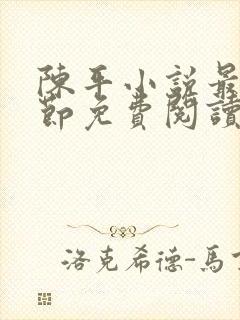 陳平小說最
節免費閱讀
洛克希德-馬